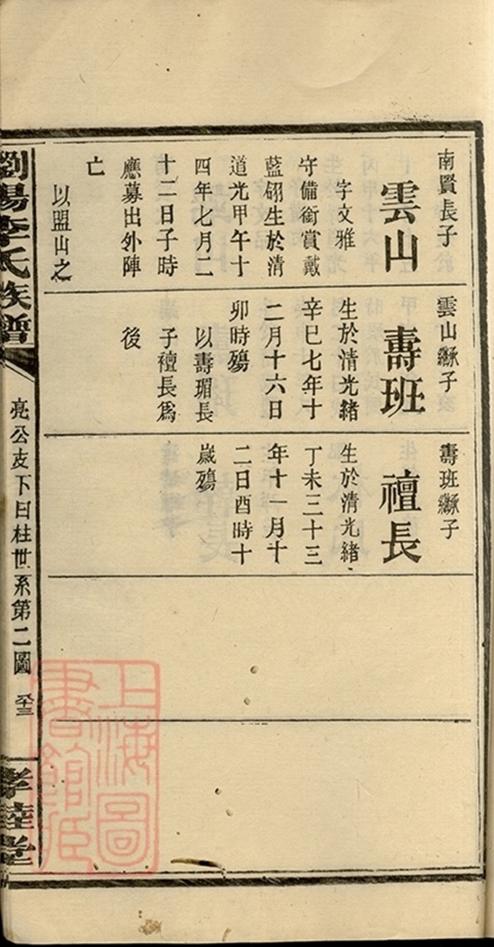 南賢長子
雲山
字文雅
守備銜賞戴
藍翎生於清
道光甲午十
四年七月二
十二日子時
應募出外陣
亡
以盟山之
雲山繼子
壽班
生於清光緒
辛巳七年十
二月十六日
卯時殤
以壽瑂長
子禮長爲
後
壽班繼子
禮長
生於清光緒
丁未三十三
年十一月十
二日酉時十
歲殤
瀏陽李氏族譜
亮公支下日柱世系第二圖
孝睦堂
上海圖書館藏